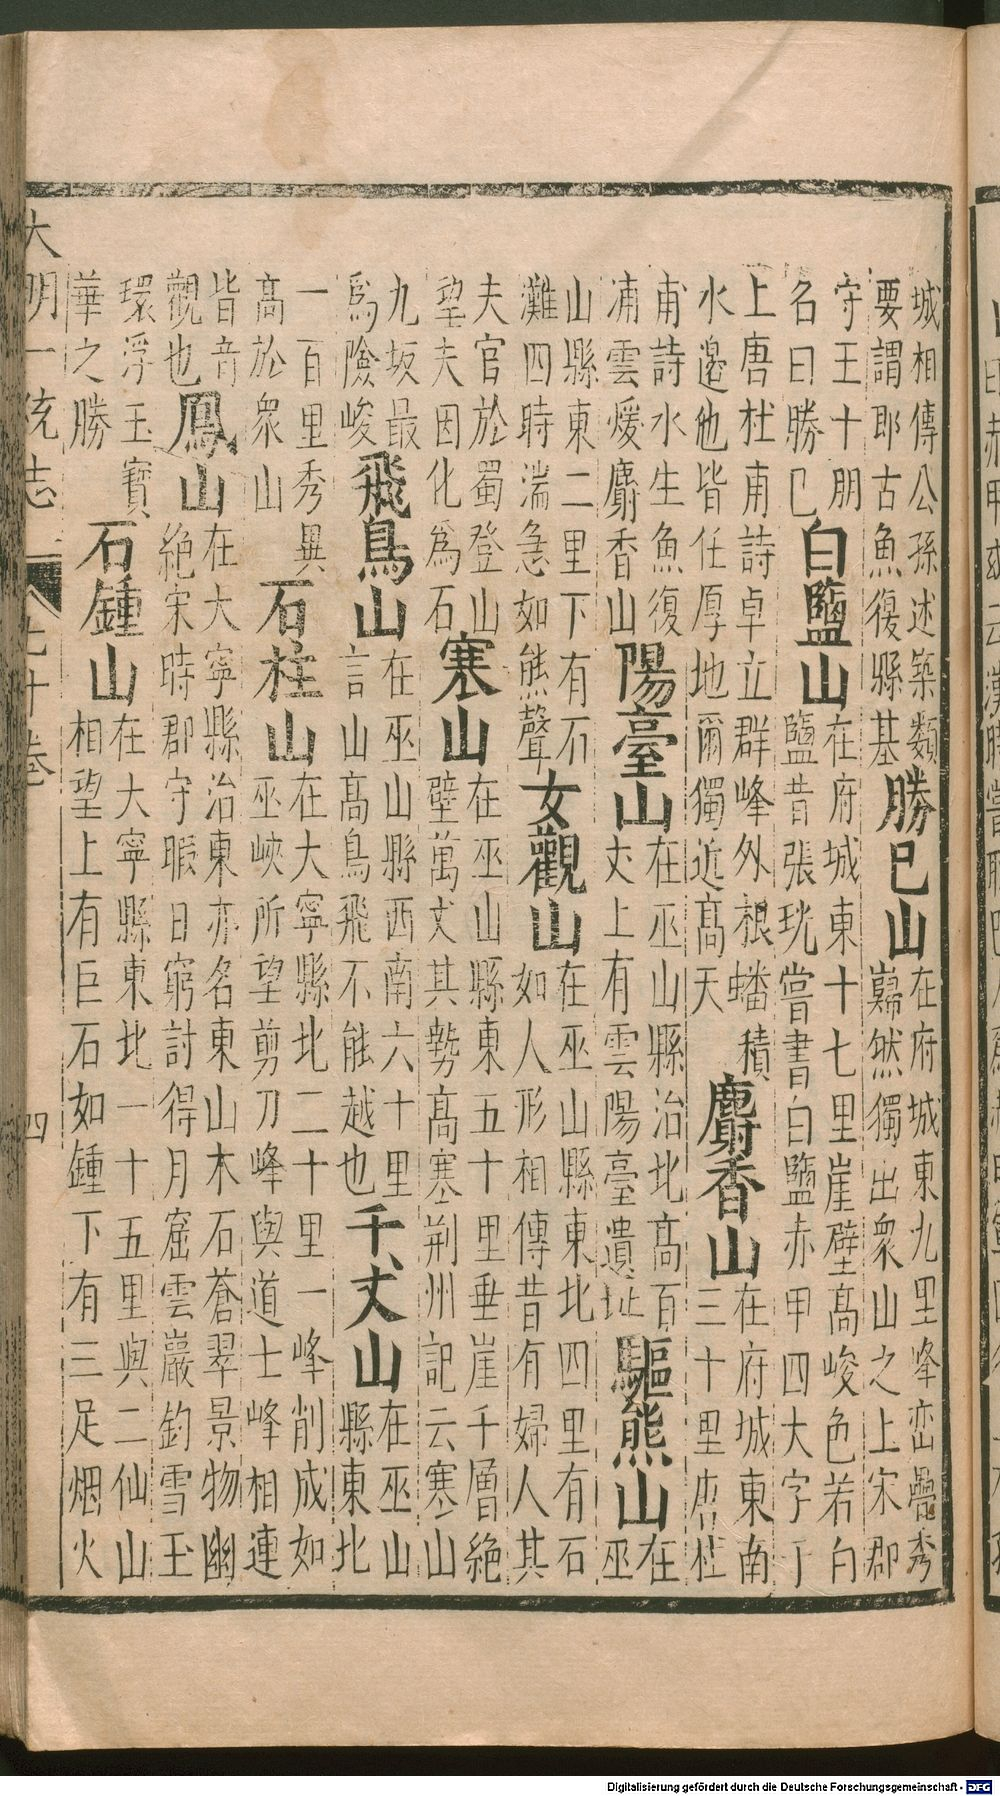 城相傳公孫述築類要謂郎古魚復縣基勝已山在府城東九里峰巒疊秀巋然獨出衆山之上宋郡
守王十朋名曰勝已白鹽山在府城東十七里崖壁高峻色若白鹽昔張珖嘗書白鹽赤甲四大字于
上唐杜甫詩卓立群峰外根蟠積水邊他皆任厚地爾獨近高天麝香山在府城東南三十里唐杜
甫詩水生魚復浦雲煖麝香山陽臺山在巫山縣治北高百丈上有雲陽臺遺址驅熊山在巫
山縣東二里下有石灘四時湍急如熊聲女觀山在巫山縣東北四里有石如人形相傳昔有婦人其
夫官於蜀登山望夫因化爲石寒山在巫山縣東五十里垂崖千層絕壁萬丈其勢高寒荆州記云寒山
九坂最爲險峻飛鳥山在巫山縣西南六十里言山高鳥飛不能越也千丈山在巫山縣東北
一百里秀異高於衆山石柱山在大寧縣北二十里一峰削成如巫峽所望剪刀峰與道士峰相連
皆音觀也鳳山在大寧縣治東亦名東山木石蒼翠景物幽絕宋時郡守暇日窮討得月窟雲巖釣雪玉
環浮玉寶華之勝石鍾山在大寧縣東北一十五里與二仙山相望上有巨石如鍾下有三足烟火
大明一統志 七十卷 四
Digitalisierung gefördert durch die Deutsche Forschungsgemeinschaft - DFG